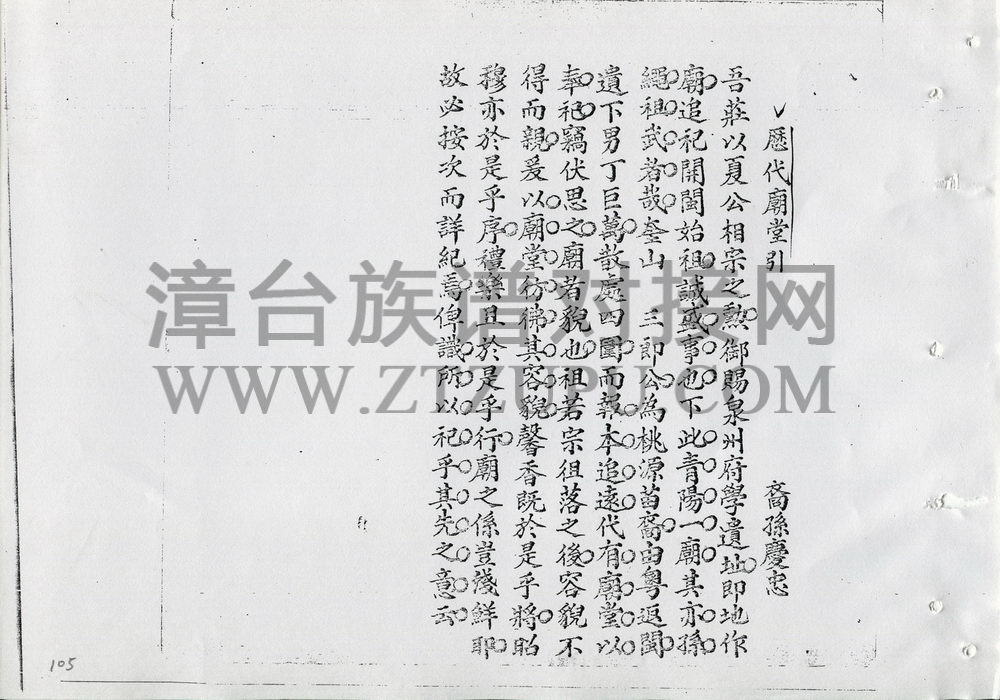 歷代廟堂引
裔孫慶忠
吾莊以夏公相宗之勲御賜泉州府學遺址即地作
廟追祀開閩始祖誠盛事也下此青陽一廟其亦孫
繩祖武者哉奎山三郎公為桃源苗裔由粵返閩
遺下男丁巨萬散處四圍而報本追遠代有廟堂以
奉祀竊伏思之廟者貌也祖若宗祖落之後容貌不
得而親爰以廟堂彷彿其容貌馨香既於是乎將昭
穆亦於是乎序禮樂且於是乎行廟之係豈淺鮮耶
故必按次而詳紀焉俾識所以祀乎其先之意云
漳台族谱对接网
WWW.ZTZUPU.COM
105